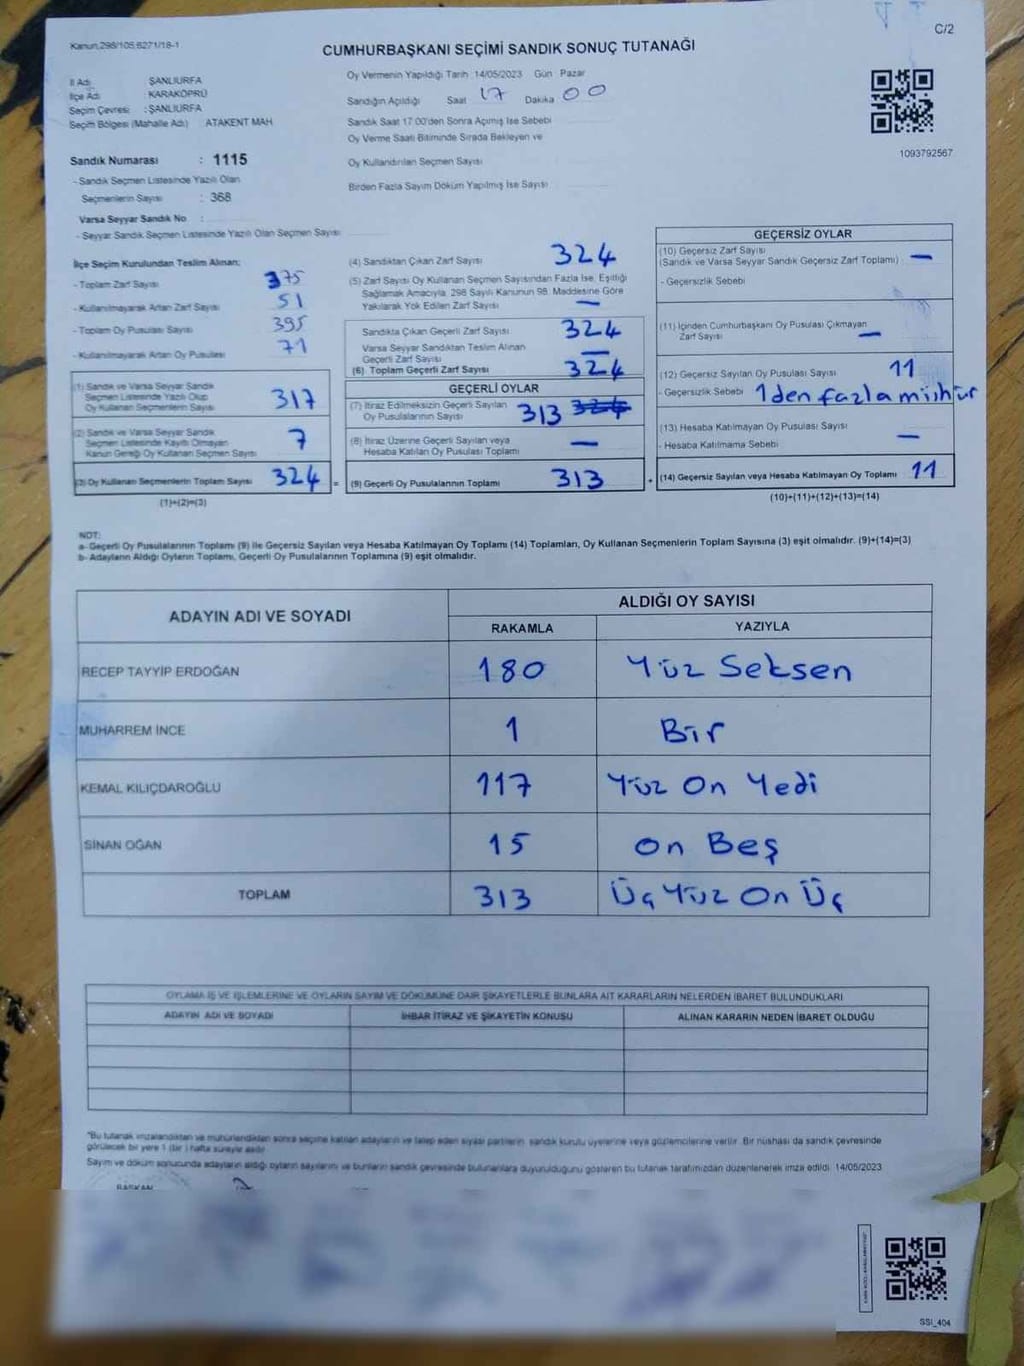 Kanun,298/105,6271/18-1
C/2
CUMHURBAŞKANI SEÇİMİ SANDIK SONUÇ TUTANAĞI
İl Adı : ŞANLIURFA
İlçe Adı KARAKÖPRÜ
Seçim Çevresi : ŞANLIURFA
Seçim Bölgesi (Mahalle Adı) ATAKENT MAH
Oy Vermenin Yapıldığı Tarih :14/05/2023 Gün Pazar
Sandığın Açıldığı Saat 17 Dakika 00
Sandık Saat 17:00'den Sonra Açımış İse Sebebi
Oy Verme Saati Bitiminde Sırada Bekleyen ve
Oy Kullandırılan Seçmen Sayısı
Birden Fazla Sayım Döküm Yapılmış İse Sayısı
1093792567
Sandık Numarası : 1115
- Sandık Seçmen Listesinde Yazılı Olan
Seçmenlerin Sayısı : 368
Varsa Seyyar Sandık No :
- Seyyar Sandık Seçmen Listesinde Yazılı Olan Seçmen Sayısı
İlçe Seçim Kurulundan Teslim Alınan:
- Toplam Zarf Sayısı 375
- Kullanılmayarak Artan Zarf Sayısı 51
- Toplam Oy Pusulası Sayısı 395
- Kullanılmayarak Artan Oy Pusulası 71
(1) Sandık ve Varsa Seyyar Sandık
Seçmen Listesinde Yazılı Olup
Oy Kullanan Seçmenlerin Sayısı 317
(2) Sandık ve Varsa Seyyar Sandık
Seçmen Listesinde Kayıtlı Olmayan
Kanun Gereği Oy Kullanan Seçmen Sayısı 7
(3) Oy Kullanan Seçmenlerin Toplam Sayısı 324 =
(1)+(2)=(3)
(4) Sandıktan Çıkan Zarf Sayısı 324
(5) Zarf Sayısı Oy Kullanan Seçmen Sayısından Fazla İse, Eşitliği
Sağlamak Amacıyla, 298 Sayılı Kanunun 98. Maddesine Göre
Yakılarak Yok Edilen Zarf Sayısı —
Sandıkta Çıkan Geçerli Zarf Sayısı 324
Varsa Seyyar Sandıktan Teslim Alınan
Geçerli Zarf Sayısı —
(6) Toplam Geçerli Zarf Sayısı 324
GEÇERLİ OYLAR
(7) İtiraz Edilmeksizin Geçerli Sayılan
Oy Pusulalarının Sayısı 313 324
(8) İtiraz Üzerine Geçerli Sayılan veya
Hesaba Katılan Oy Pusulası Toplamı —
(9) Geçerli Oy Pusulalarının Toplamı 313 +
GEÇERSİZ OYLAR
(10) Geçersiz Zarf Sayısı
(Sandık ve Varsa Seyyar Sandık Geçersiz Zarf Toplamı) —
- Geçersizlik Sebebi
(11) İçinden Cumhurbaşkanı Oy Pusulası Çıkmayan
Zarf Sayısı —
(12) Geçersiz Sayılan Oy Pusulası Sayısı 11
- Geçersizlik Sebebi 1den fazla mühür
(13) Hesaba Katılmayan Oy Pusulası Sayısı
- Hesaba Katılmama Sebebi —
(14) Geçersiz Sayılan veya Hesaba Katılmayan Oy Toplamı 11
(10)+(11)+(12)+(13)=(14)
NOT:
a- Geçerli Oy Pusulalarının Toplamı (9) ile Geçersiz Sayılan veya Hesaba Katılmayan Oy Toplamı (14) Toplamları, Oy Kullanan Seçmenlerin Toplam Sayısına (3) eşit olmalıdır. (9)+(14)=(3)
b- Adayların Aldığı Oyların Toplamı, Geçerli Oy Pusulalarının Toplamına (9) eşit olmalıdır.
ADAYIN ADI VE SOYADI ALDIĞI OY SAYISI
RAKAMLA YAZIYLA
RECEP TAYYİP ERDOĞAN 180 Yüz Seksen
MUHARREM İNCE 1 Bir
KEMAL KILIÇDAROĞLU 117 Yüz On Yedi
SİNAN OĞAN 15 On Beş
TOPLAM 313 Üç Yüz On Üç
OYLAMA İŞ VE İŞLEMLERİNE VE OYLARIN SAYIM VE DÖKÜMÜNE DAİR ŞİKAYETLERLE BUNLARA AİT KARARLARIN NELERDEN İBARET BULUNDUKLARI
ADAYIN ADI VE SOYADI İHBAR İTİRAZ VE ŞİKAYETİN KONUSU ALINAN KARARIN NEDEN İBARET OLDUĞU
*Bu tutanak imzalandıktan ve mühürlendikten sonra seçime katılan adayların ve talep eden siyasi partilerin sandık kurulu üyelerine veya gözlemcilerine verilir. Bir nüshası da sandık çevresinde
görülecek bir yere 1 (bir) hafta süreyle asılır.
Sayım ve döküm sonucunda adayların aldığı oyların sayılarını ve bunların sandık çevresinde bulunanlara duyurulduğunu gösteren bu tutanak tarafımızdan düzenlenerek imza edildi. 14/05/2023
BAŞKAN
SSI_404